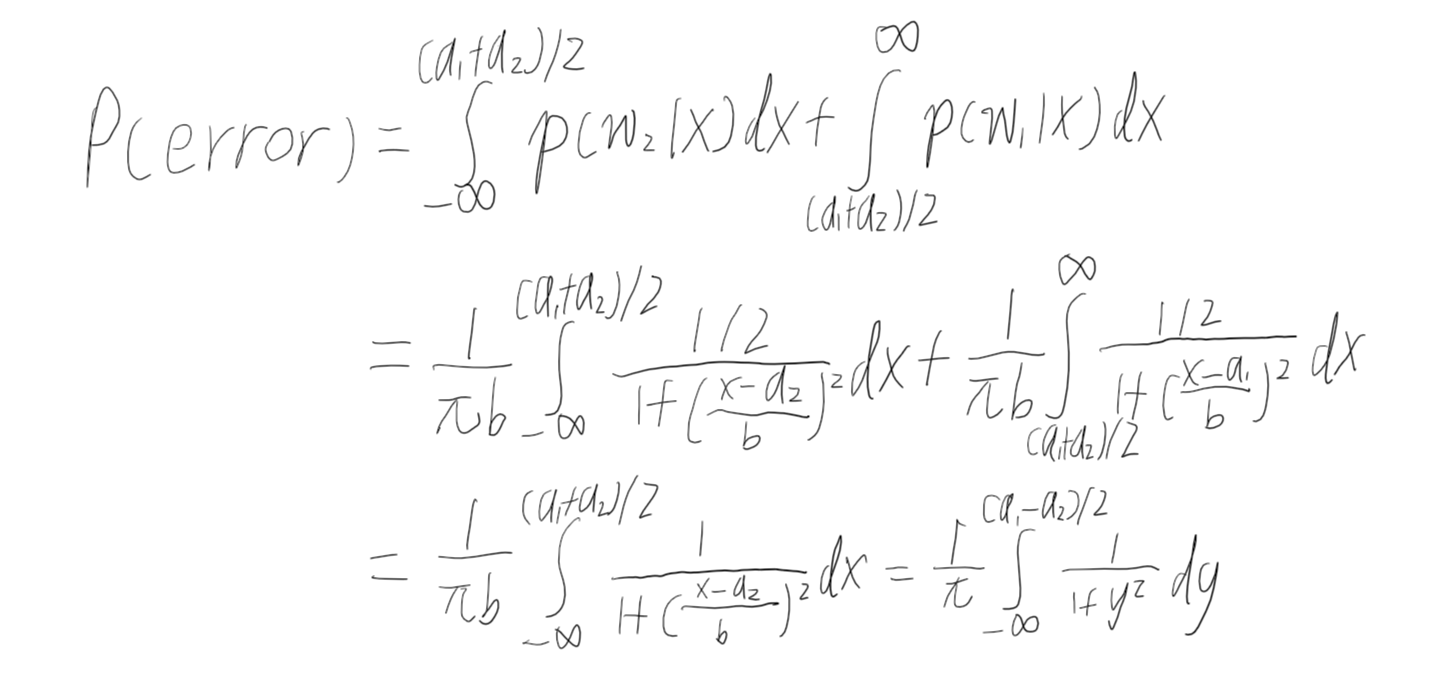 $P(error) = \int_{-\infty}^{(a_1+a_2)/2} p(w_2|x)dx + \int_{(a_1+a_2)/2}^{\infty} p(w_1|x)dx$
$= \frac{1}{\pi b} \int_{-\infty}^{(a_1+a_2)/2} \frac{1/2}{1+(\frac{x-a_2}{b})^2} dx + \frac{1}{\pi b} \int_{(a_1+a_2)/2}^{\infty} \frac{1/2}{1+(\frac{x-a_1}{b})^2} dx$
$= \frac{1}{\pi b} \int_{-\infty}^{(a_1+a_2)/2} \frac{1}{1+(\frac{x-a_2}{b})^2} dx = \frac{1}{\pi} \int_{-\infty}^{(a_1-a_2)/2} \frac{1}{1+y^2} dy$